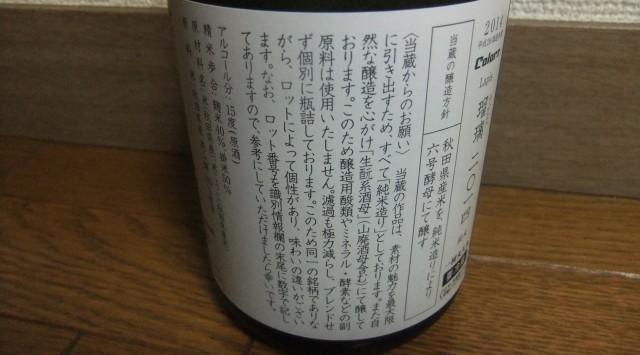 2014
Colors
Lapis
瑠璃 二〇一四
秋田県産米を、純米造りにより
六号酵母にて醸す
当蔵の醸造方針
〈当蔵からのお願い〉 当蔵の作品は、素材の魅力を最大限
に引き出すため、すべて「純米造り」としております。また自
然な醸造を心がけ「生酛系酒母」(山廃酒母含む)にて醸して
おります。このため醸造用酸類やミネラル・酵素などの副
原料は使用いたしません。濾過も極力減らし、ブレンドせ
ず個別に瓶詰しております。このため同一の銘柄でありな
がら、ロットによって個性があり、味わいの違いがござい
ます。なお、ロット番号を識別情報欄の末尾に数字で記し
てありますので、参考にしていただけましたら幸いです。
アルコール分:15度(原酒)
精米歩合:麹米40%、掛米50%
原材料名:米